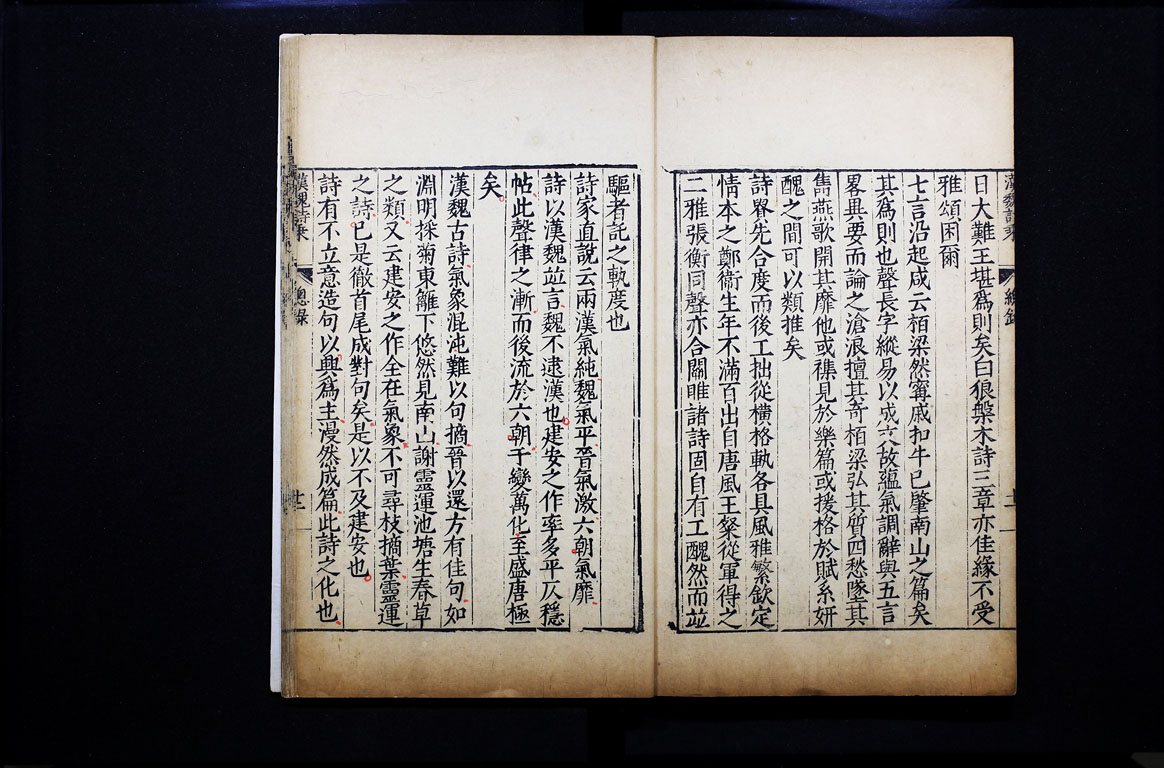 漢魏詩乘 總錄 十二
日大難王堪爲則矣曰狼槃木詩三章亦佳緣不受
雅頌困爾
七言沿起咸云栢梁然寗戚扣牛已肇南山之篇矣
其爲則也聲長字縱易以成文故蘊氣調辭與五言
畧異要而論之滄浪擅其奇栢梁弘其質四愁墜其
雋燕歌開其靡他或襍見於樂篇或援格於賦系妍
醜之間可以類推矣
詩貴先合度而後工拙從横格軌各具風雅繁欽定
情本之鄭衞生年不滿百出自唐風王粲從軍得之
二雅張衡同聲亦合關雎諸詩固自有工醜然而並
驅者託之軌度也
詩家直說云兩漢氣純魏氣平晉氣激六朝氣靡
詩以漢魏並言魏不逮漢也建安之作率多平仄穩
帖此聲律之漸而後流於六朝千變萬化至盛唐極
矣
漢魏古詩氣象混沌難以句摘晉以還方有佳句如
淵明採菊東籬下悠然見南山謝靈運池塘生春草
之類又云建安之作全在氣象不可尋枝摘葉靈運
之詩已是徹首尾成對句矣是以不及建安也
詩有不立意造句以興爲主漫然成篇此詩之化也
漢魏詩乘 總錄 廿